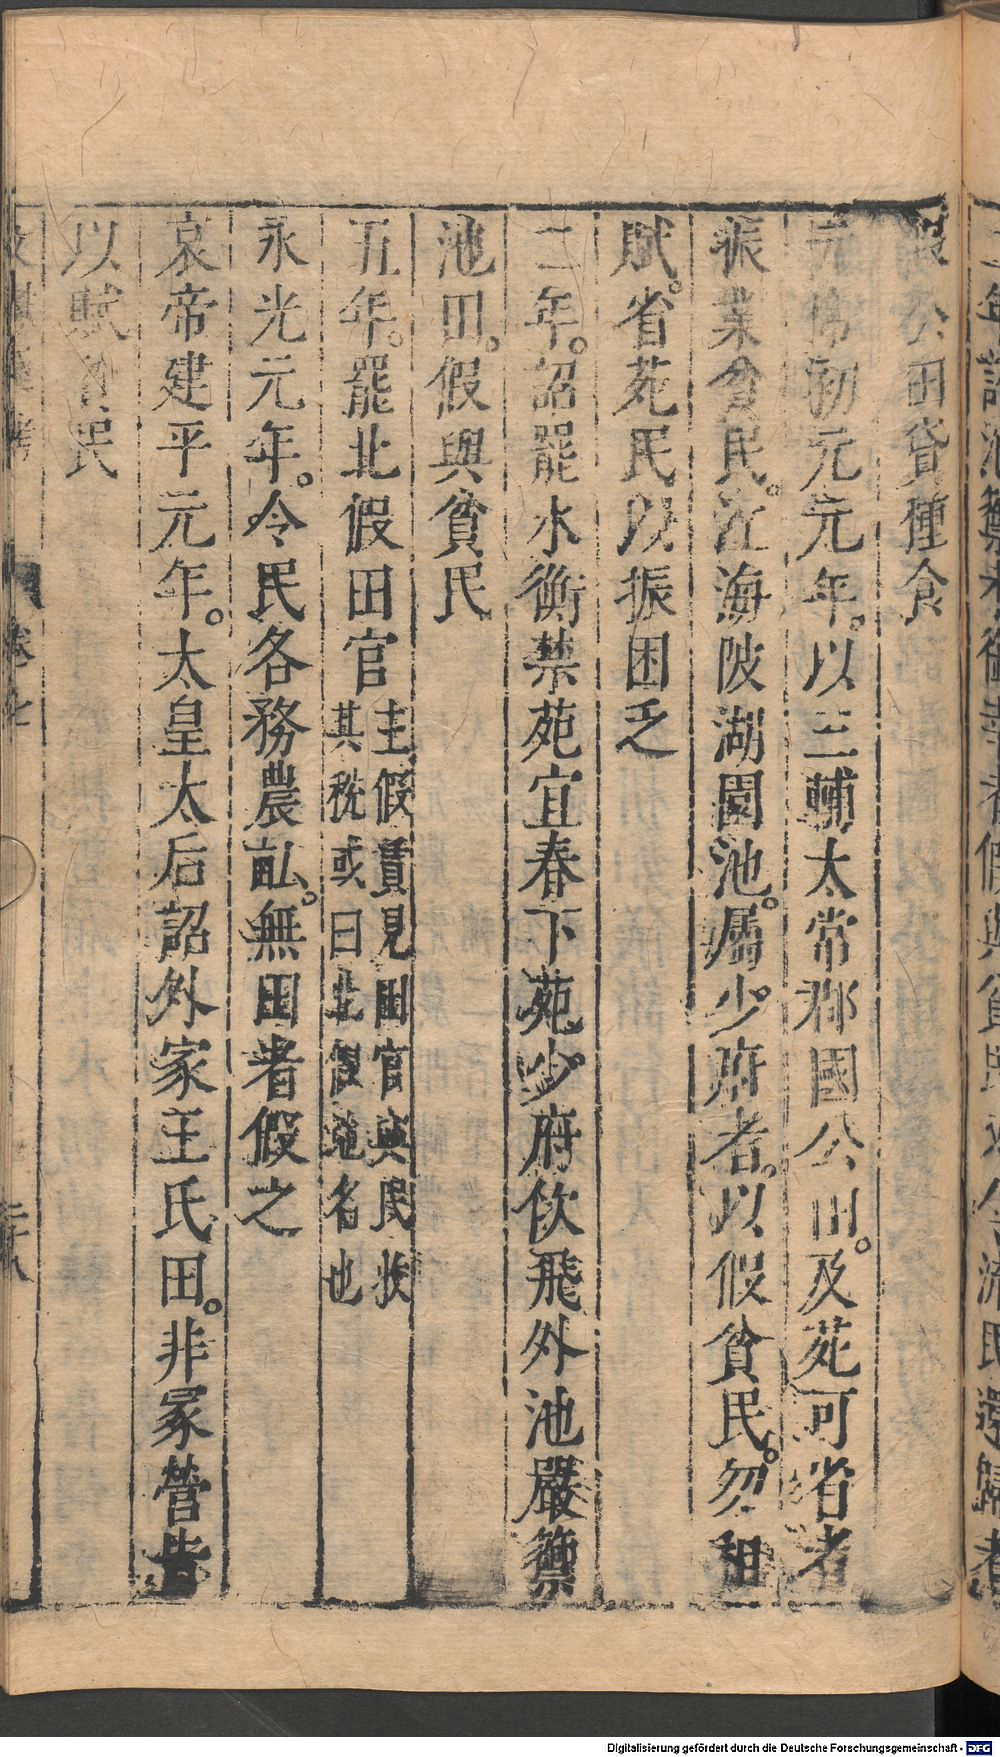 假公田貸種食
元帝初元元年。以三輔太常郡國公田。及苑可省者
振業貧民。江海陂湖園池。屬少府者。以假貧民。勿租
賦。省苑民以振困乏
二年。詔罷水衡禁苑宜春下苑少府佽飛外池嚴籞
池田。假與貧民
五年。罷北假田官主假賃見田官與民收
其稅或曰北假地名也
永光元年。令民各務農畝。無田者假之
哀帝建平元年。太皇太后詔外家王氏田。非冢塋皆
以賦貧民
卷七
二十八
Digitalisierung gefördert durch die Deutsche Forschungsgemeinschaft - DFG